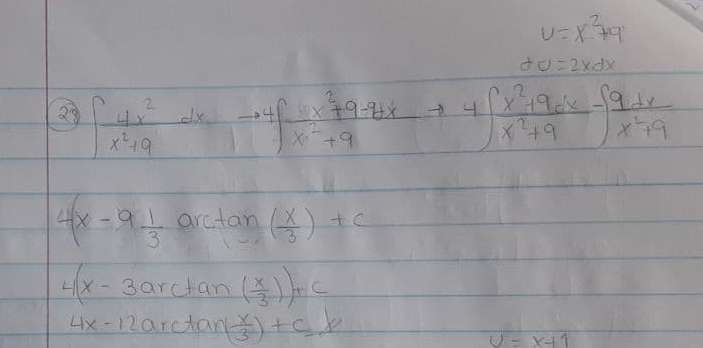 u = x²+9
du = 2xdx
29 ∫ 4x²/(x²+9) dx → 4∫ (x²+9-9)dx/(x²+9) → 4∫ (x²+9 dx)/(x²+9) - ∫ 9dx/(x²+9)
4(x - 9 1/3 arctan (x/3) + c
4(x - 3 arctan (x/3)) + c
4x - 12 arctan(x/3) + c
u = x+1